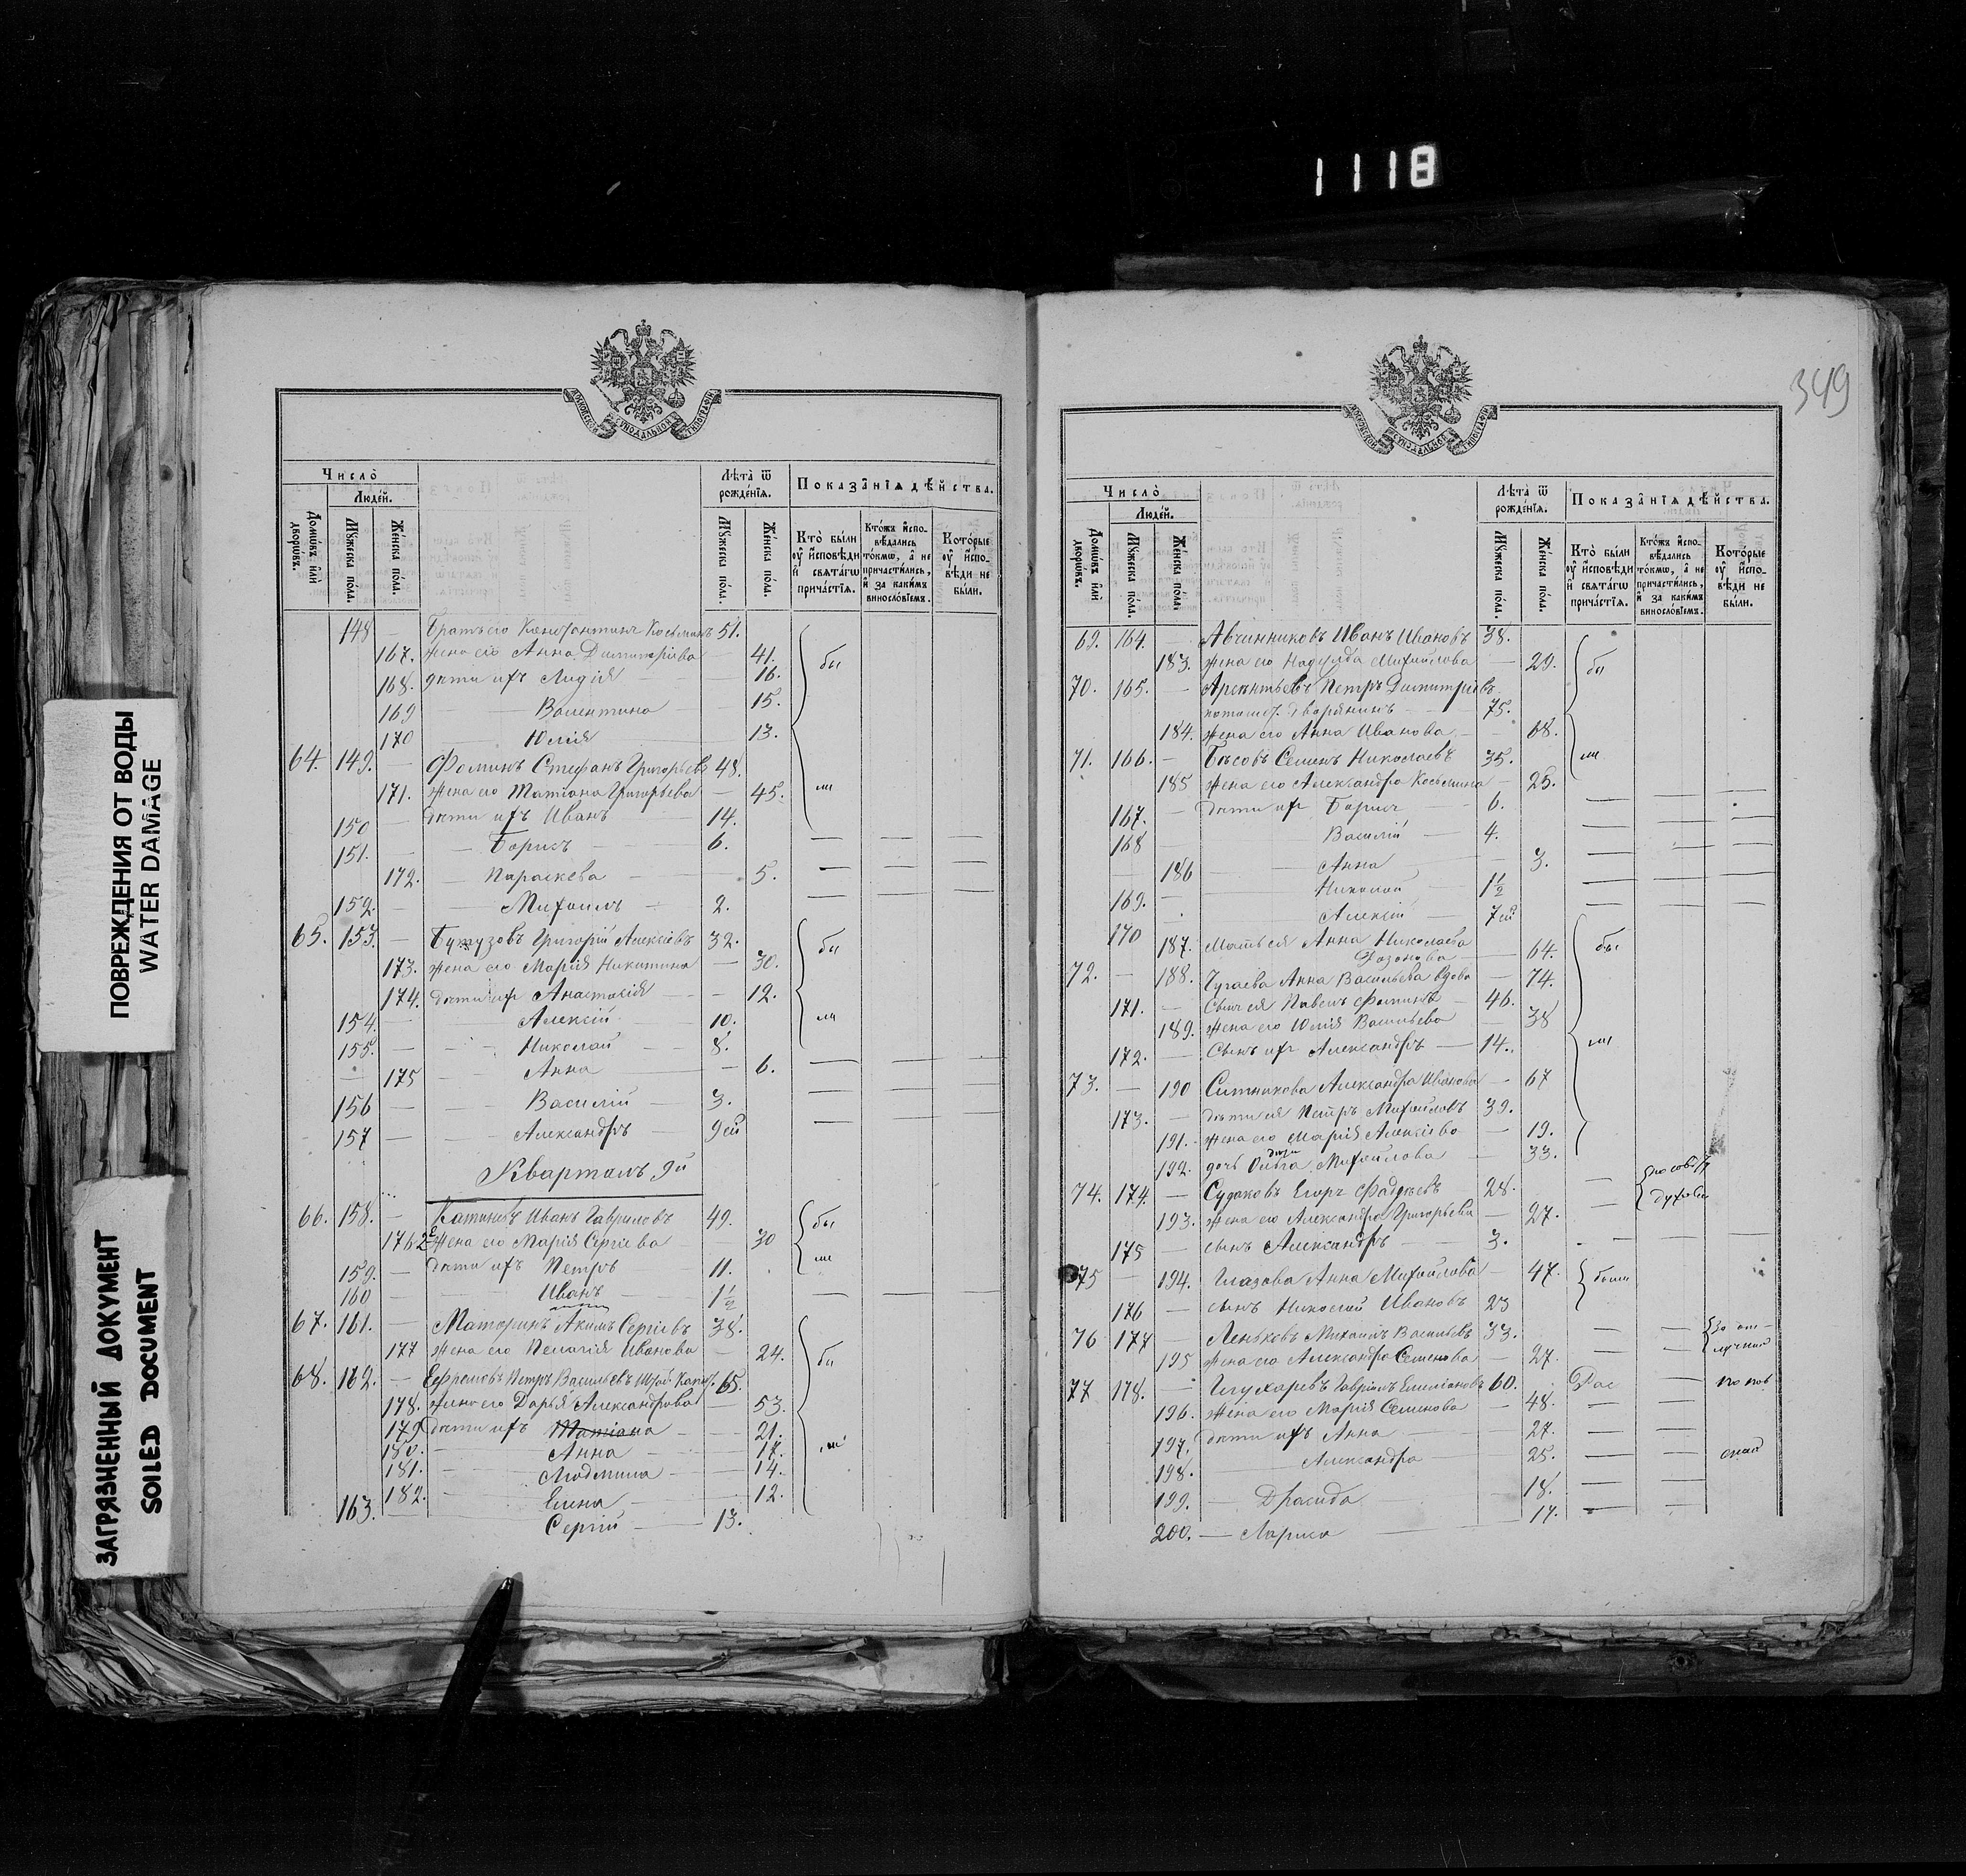 1118
ПОВРЕЖДЕНИЯ ОТ ВОДЫ
WATER DAMAGE
ЗАГРЯЗНЕННЫЙ ДОКУМЕНТ
SOILED DOCUMENT
Число̀
Людéй.
Лѣтà ѿ рождéнїя.
Показáнїѧ дѣ́йства.
Домѡ́въ и҆лѝ дворѡ́въ.
Мꙋ́жеска по́ла.
Же́нска по́ла.
Мꙋ́жеска по́ла.
Же́нска по́ла.
Ктò бы́ли ᲂу҆ и҆́сповѣди и҆ свѧта́гѡ прича́стїѧ.
Кто́жъ и҆спо-вѣ́дались то́кмѡ, а҆ не причасти́лись, и҆ за каки́мъ виносло́вїемъ.
Кото́рые ᲂу҆ и҆́спо-вѣди не бы́ли.
148 — Братъ его Константинъ Косьминъ 51.
167. жена его Анна Димитріева — 41.
168. дѣти ихъ Лидія — — 16.
169 — — Валентина — — 15.
170 — Юлія 13.
64. 149. — Фоминъ Стефанъ Григорьевъ 48.
171. жена его Татіана Григорьева — 45.
150 — дѣти ихъ Иванъ 14.
151. — — Борисъ — 6.
172. — Параскева — — 5.
152. — — Михаилъ — 2.
65. 153. — Бутузовъ Григорій Алексіевъ 32.
173. жена его Марія Никитина — 30.
174. дѣти ихъ Анастасія — — 12.
154. — — Алексій 10.
155. — — Николай — 8.
— 175 — Анна — 6.
156 — — Василій — 3.
157 — — Александръ — 9 ей
Кварталъ 9й
66. 158. — Иванъ Гавриловъ 49.
176 2я жена его Марія Сергіева — 30
159. — дѣти ихъ Петръ 11.
160 — — Иванъ — 1 1/2
67. 161. — Акимъ Сергіевъ 38.
177 жена его Пелагія Иванова — 24.
68. 162. — Ефремовъ Петръ Васильевъ 65.
178. жена его Дарья Александрова — 53.
179 дѣти ихъ Татіана — — 21.
180. — — Анна — — 17.
181. — Людмила — — 14.
182. — Елена — — 12.
163. — Сергій — 13.
бы
ли
бы
ли
бы
ли
бы
ли
349
Число̀
Людéй.
Лѣтà ѿ рождéнїя.
Показáнїѧ дѣ́йства.
Домѡ́въ и҆лѝ дворѡ́въ.
Мꙋ́жеска по́ла.
Же́нска по́ла.
Мꙋ́жеска по́ла.
Же́нска по́ла.
Ктò бы́ли ᲂу҆ и҆́сповѣди и҆ свѧта́гѡ прича́стїѧ.
Кто́жъ и҆спо-вѣ́дались то́кмѡ, а҆ не причасти́лись, и҆ за каки́мъ виносло́вїемъ.
Кото́рые ᲂу҆ и҆́спо-вѣди не бы́ли.
69. 164. — Авчинниковъ Иванъ Ивановъ 38.
183. жена его Надежда Михайлова — 29.
70. 165. — Арсентьевъ Петръ Димитріевъ
дворянинъ — 75.
184. жена его Анна Иванова — 68.
71. 166. — Бѣсовъ Семенъ Николаевъ 35.
185 жена его Александра Косьмина — 25.
167. — дѣти ихъ Борисъ — 6.
168 — Василій — 4.
186 — Анна — 3.
169. — Николай — 1 1/2
170 — Алексій — 7 ей
187. Мать ея Анна Николаева
— 64.
72. — 188. Чугаева Анна Васильева вдова — 74.
171. — сынъ ея Павелъ Фоминъ — 46.
189. жена его Юлія Васильева — 38
172. — сынъ ихъ Александръ — 14.
73. — 190 Ситникова Александра Иванова — 67
173. — дѣти ея Петръ Михайловъ 39.
191. — жена его Марія Алексіева — 19.
192. дочь Ольга Михайлова — 33.
74. 174. — Судаковъ Егоръ Фадѣевъ 28.
193. жена его Александра Григорьева — 27.
175 — сынъ Александръ — 3.
75 — 194. Глазова Анна Михайлова — 47.
176 — сынъ Николай Ивановъ 23
76 177 — Леньковъ Михаилъ Васильевъ 33.
195 жена его Александра Семенова — 27.
77 178. — Глухаревъ Гавріилъ Емиліановъ 60.
196. жена его Марія Семенова — 48.
197. дѣти ихъ Анна — 27.
198. — Александра — 25.
199. — Дросида 18.
200. — Лариса 17.
бы
ли
бы
ли
по совѣту
были
за от-
лучкой
Рас
по пов